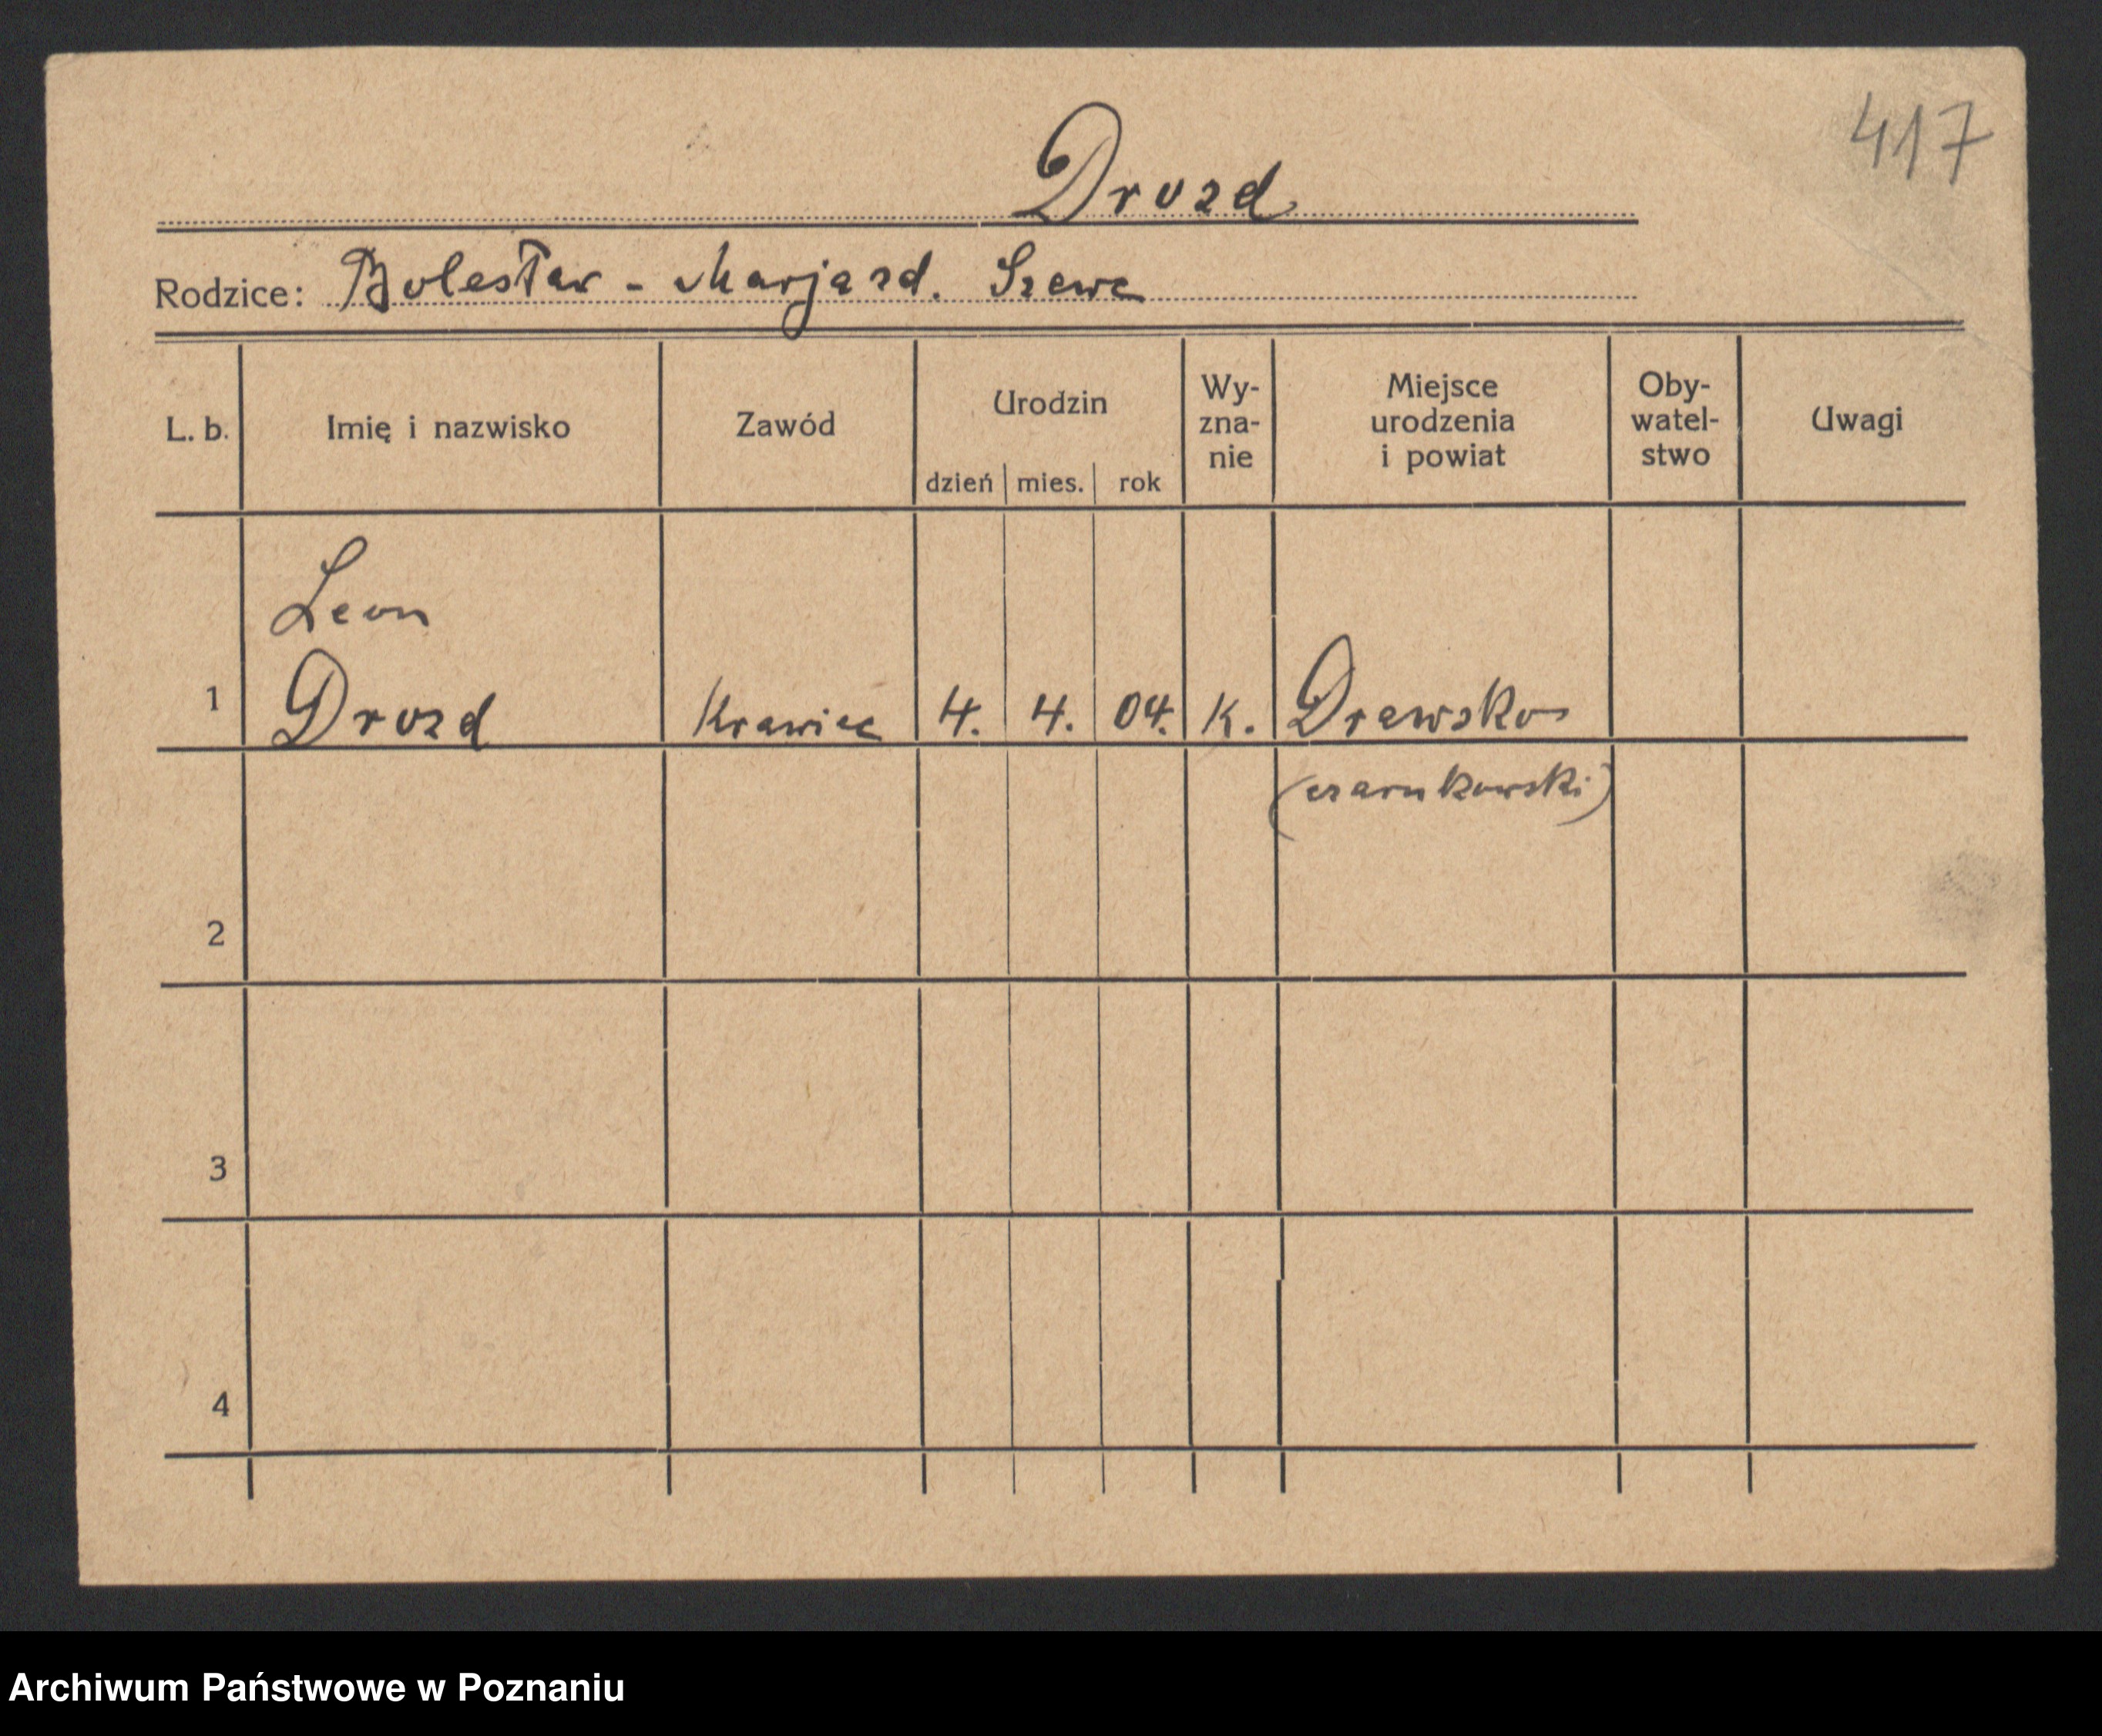 417
Drozd
Rodzice: Bolesław - Marja zd. Szewc
L. b.
Imię i nazwisko
Zawód
Urodzin
dzień mies. rok
Wy-
zna-
nie
Miejsce
urodzenia
i powiat
Oby-
watel-
stwo
Uwagi
Leon
1 Drozd Krawiec 4. 4. 04. K. Drawsko
(czarnkowski)
2
3
4
Archiwum Państwowe w Poznaniu